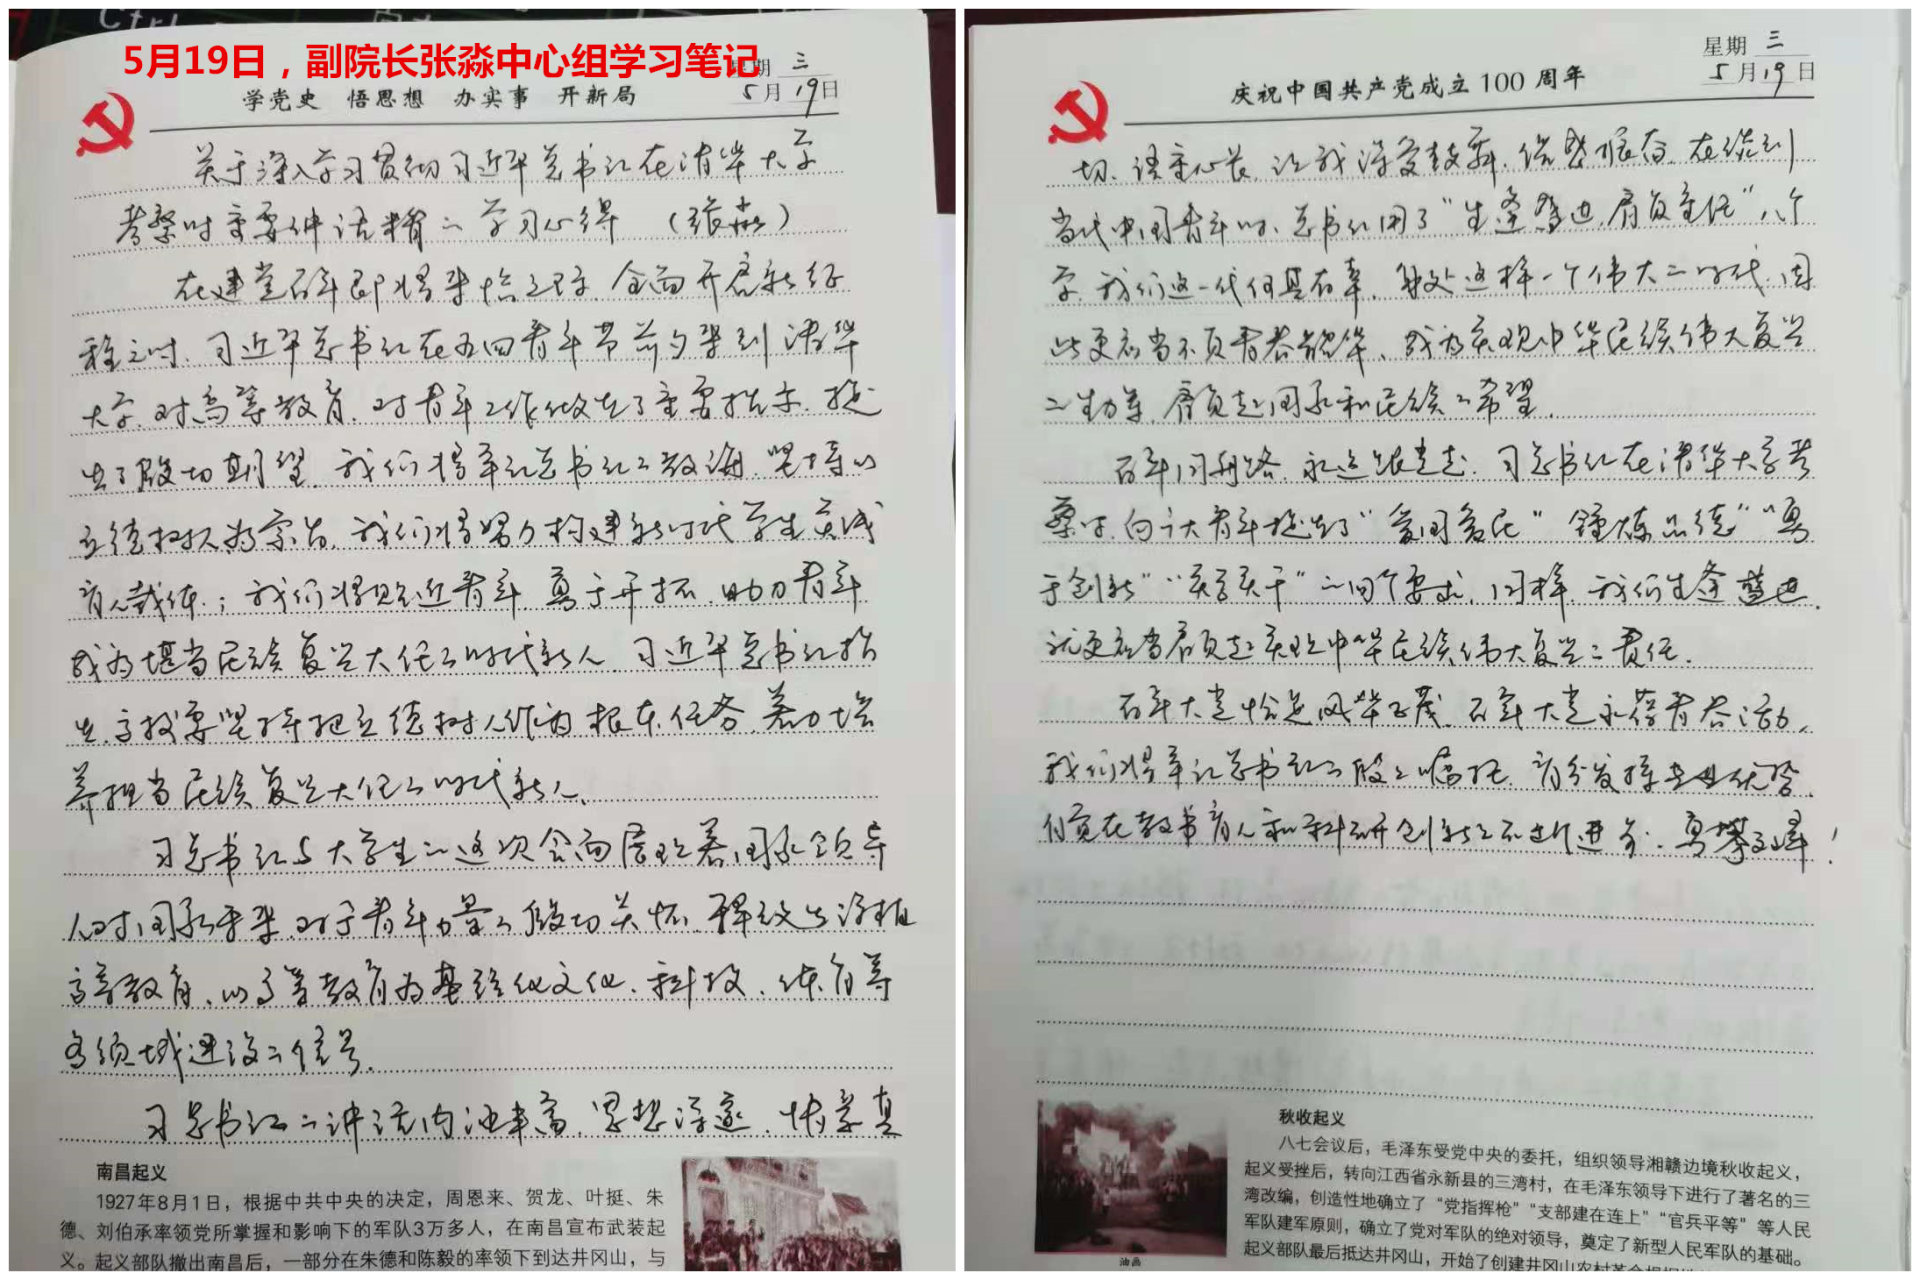 5月19日，副院长张淼中心组学习笔记
星期 三
学党史 悟思想 办实事 开新局
5月19日
关于深入学习贯彻习近平总书记在清华大学
考察时重要讲话精神的学习心得 （张淼）
在建党百年即将来临之际，全面开启新征
程之时，习近平总书记在五四青年节前夕来到清华
大学，对高等教育，对青年工作做出了重要指示，提
出了殷切期望。我们将牢记总书记的教诲，坚持以
立德树人为宗旨，我们将努力构建新时代学生
育人载体；我们将贴近青年，勇于开拓，助力青年
成为堪当民族复兴大任的时代新人。习近平总书记指
出，高校要坚持把立德树人作为根本任务，着力培
养担当民族复兴大任的时代新人。
习总书记与大学生的这次会面展现着国家领导
人对国家未来，对于青年力量的殷切关怀，释放出深植
高等教育，以高等教育为基 文化、科技、体育等
各领域建设的信号。
习总书记的讲话内涵丰富，思想深邃，情 真
南昌起义
1927年8月1日，根据中共中央的决定，周恩来、贺龙、叶挺、朱
德、刘伯承率领党所掌握和影响下的军队3万多人，在南昌宣布武装起
义。起义部队撤出南昌后，一部分在朱德和陈毅的率领下到达井冈山，与
星期 三
庆祝中国共产党成立100周年
5月19日
切、语重心长，让我深受鼓舞，倍感振奋。在谈到
当代中国青年时，总书记用了“生逢盛世，肩负重任”八个
字，我们这一代何其有幸，身处这样一个伟大的时代，因
此更应当不负青春韶华，成为实现中华民族伟大复兴
的生力军，肩负起国家和民族的希望。
百年同舟路，永远跟党走。习总书记在清华大学考
察时，向广大青年提出了“爱国爱民”“锤炼品德”“勇
于创新”“实学实干”的四个要求，同样，我们生逢盛世，
就更应当肩负起实现中华民族伟大复兴的责任。
百年大党恰是风华正茂，百年大党永葆青春活力，
我们将牢记总书记的殷殷嘱托，充分发挥专业优势，
在教书育人和科研创新上不断进步，勇攀高峰！
秋收起义
八七会议后，毛泽东受党中央的委托，组织领导湘赣边境秋收起义，
起义受挫后，转向江西省永新县的三湾村，在毛泽东领导下进行了著名的三
湾改编，创造性地确立了“党指挥枪”“支部建在连上”“官兵平等”等人民
军队建军原则，确立了党对军队的绝对领导，奠定了新型人民军队的基础。
起义部队最后抵达井冈山，开始了创建井冈山农村革命根据地
油画